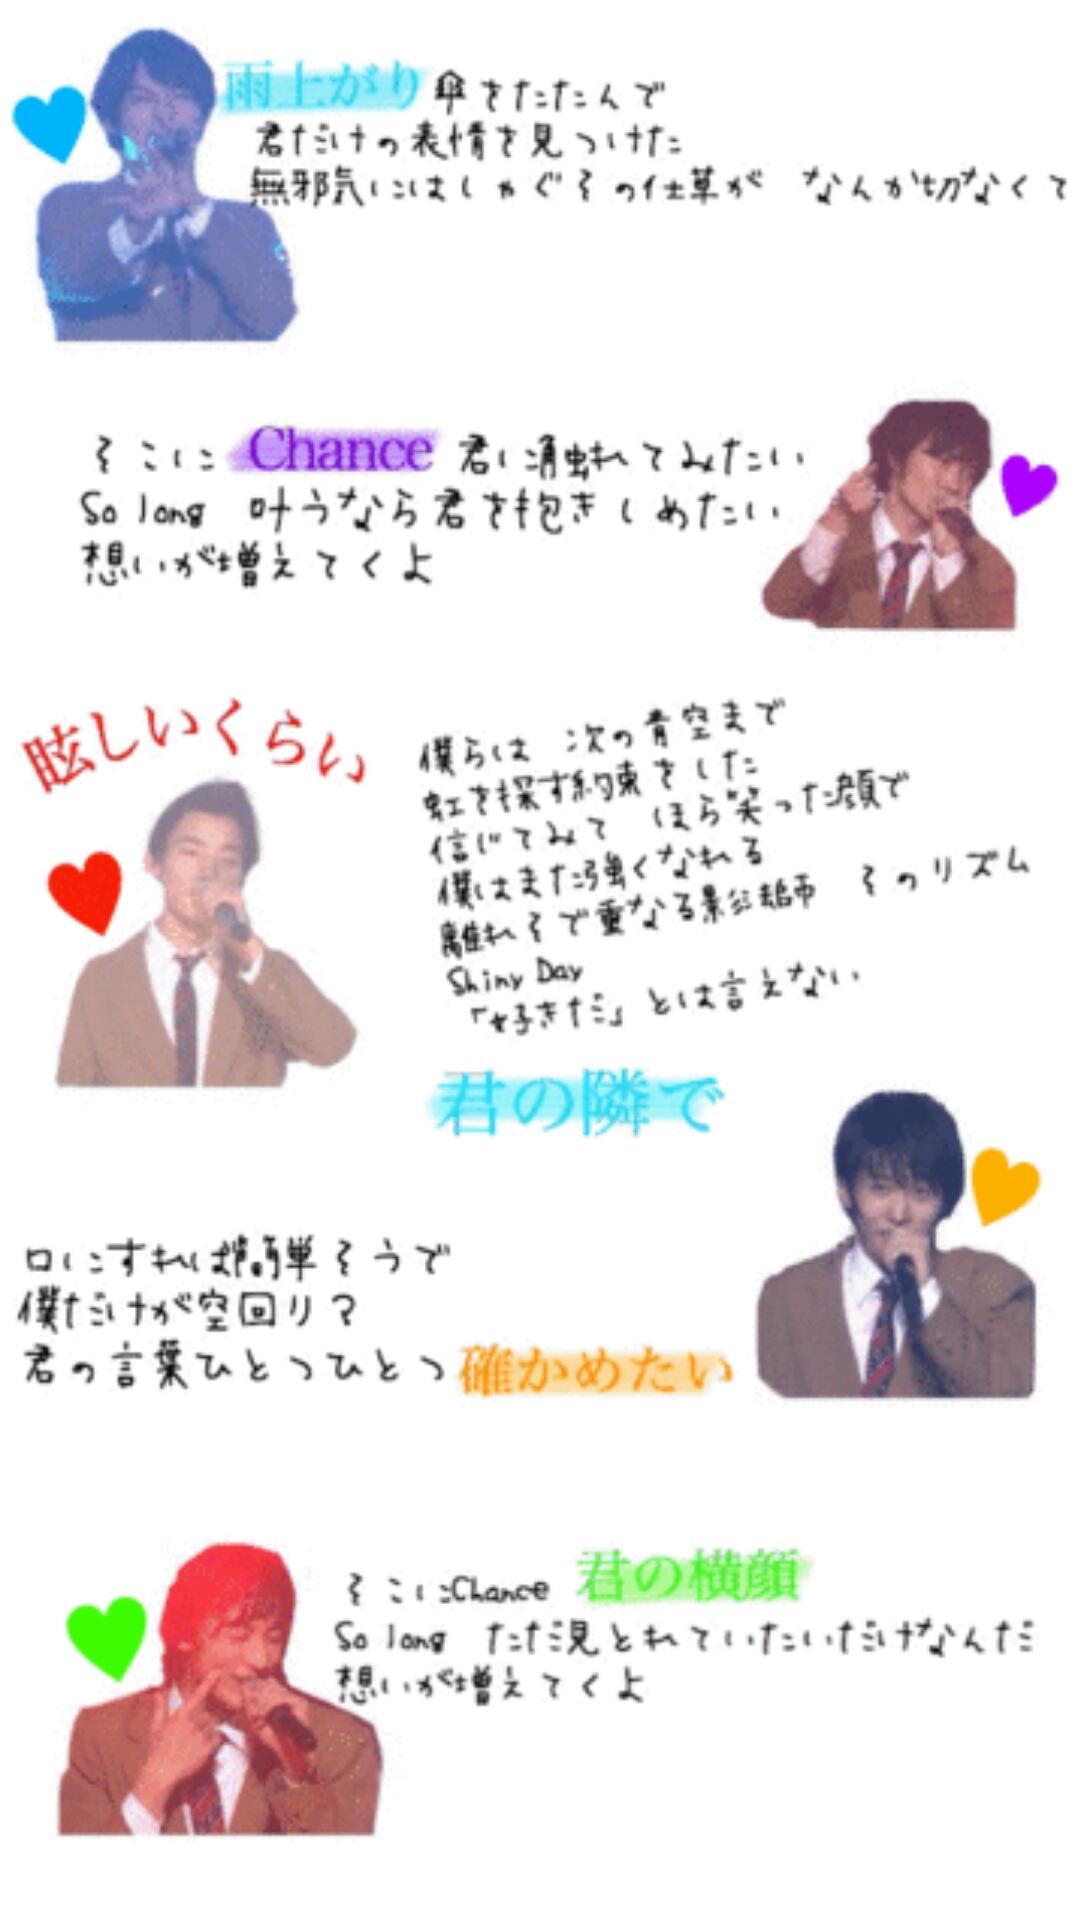 雨上がり 傘をたたんで
君だけの表情を見つけた
無邪気にはしゃぐその仕草が なんか切なくて
そこに Chance 君に触れてみたい
So long 叶うなら君を抱きしめたい
想いが増えてくよ
眩しいくらい
僕らは 次の青空まで
虹を探す約束をした
信じてみて ほら笑った顔で
僕はまた強くなれる
離れそで重なる影法師 そのリズム
Shiny Day
「好きだ」とは言えない
君の隣で
口にすれば簡単そうで
僕だけが空回り?
君の言葉ひとつひとつ 確かめたい
そこにChance 君の横顔
So long ただ見とれていたいだけなんだ
想いが増えてくよ